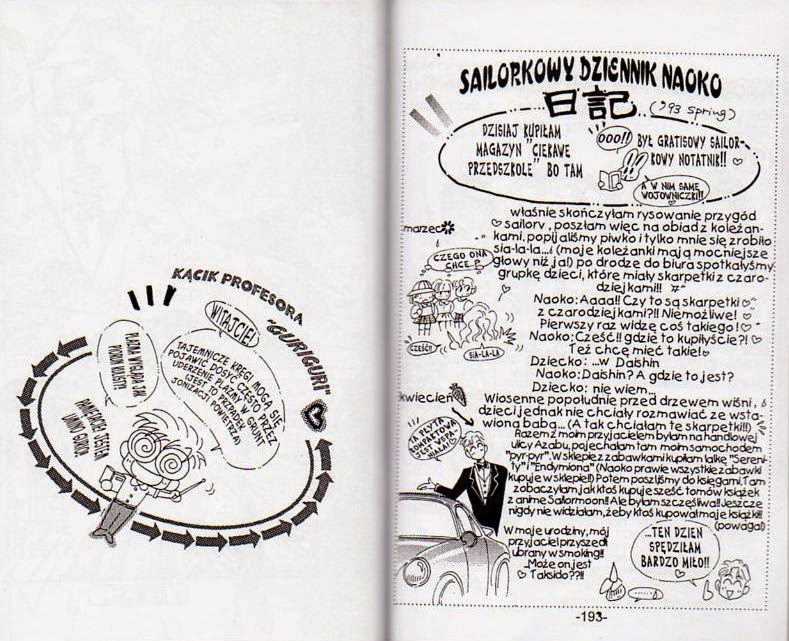 KĄCIK PROFESORA
"GURIGURI"
WITAJCIE!
TAJEMNICZE KRĘGI MOGĄ SIĘ
POJAWIĆ DOSYĆ CZĘSTO PRZEZ
UDERZENIE PLAZMY W GRUNT
JEST TO PRZEPADEK
JONIZACJI POWIETRZA
PLAZMA WYGLĄDA JAK
OGNIKI
SAILORKOWY DZIENNIK NAOKO
日記
('93 Spring)
DZISIAJ KUPIŁAM
MAGAZYN "CIEKAWE
PRZEDSZKOLE" BO TAM
OOO!!
BYŁ GRATISOWY SAILOR-
KOWY NOTATNIK!! ♡
A W NIM SAME
WOJOWNICZKI!!
♡
marzec
właśnie skończyłam rysowanie przygód
♡ sailorv , poszłam więc na obiad z koleżan-
kami, popijaliśmy piwko i tylko mnie się zrobiło
sia-la-la...! (moje koleżanki mają mocniejsze
głowy niż ja!) po drodze do biura spotkałyśmy
grupkę dzieci, które miały skarpetki z czaro-
dziejkami!!
CZEGO ONA
CHCE ?
CZEŚĆ!!
SIA-LA-LA
Naoko: Aaaa!! Czy to są skarpetki ♡
z czarodziejkami?!! Niemożliwe!
Pierwszy raz widzę coś takiego! ♡
Naoko: Cześć!! gdzie to kupiłyście?!
Też chcę mieć takie!
Dziecko: ...w Daishin
Naoko: Daishin? A gdzie to jest?
Dziecko: nie wiem...
kwiecień
Wiosenne popołudnie przed drzewem wiśni,
dzieci jednak nie chciały rozmawiać ze wsta-
wioną babą... (A tak chciałam te skarpetki!!)
TA PŁYTA
KOMPAKTOWA
JEST WSPA-
NIAŁA!!
Razem z moim przyjacielem byłam na handlowej
ulicy Azabu, pojechałam tam moim samochodem
"pyr-pyr". W sklepie z zabawkami kupiłam lalkę "Sereni-
ty" i "Endymiona" (Naoko prawie wszystkie zabawki
kupuje w sklepie!) Potem poszliśmy do księgarni. Tam
zobaczyłam jak ktoś kupuje sześć tomów książek
z anime Sailormoon!! Ale byłam szczęśliwa!! Jeszcze
nigdy nie widziałam, żeby ktoś kupował moje książki!!
(powaga!)
W moje urodziny, mój
przyjaciel przyszedł
ubrany w smoking!!
...Może on jest
♡ Taksido??!!
...TEN DZIEŃ
SPĘDZIŁAM
BARDZO MIŁO!!
♡
-193-